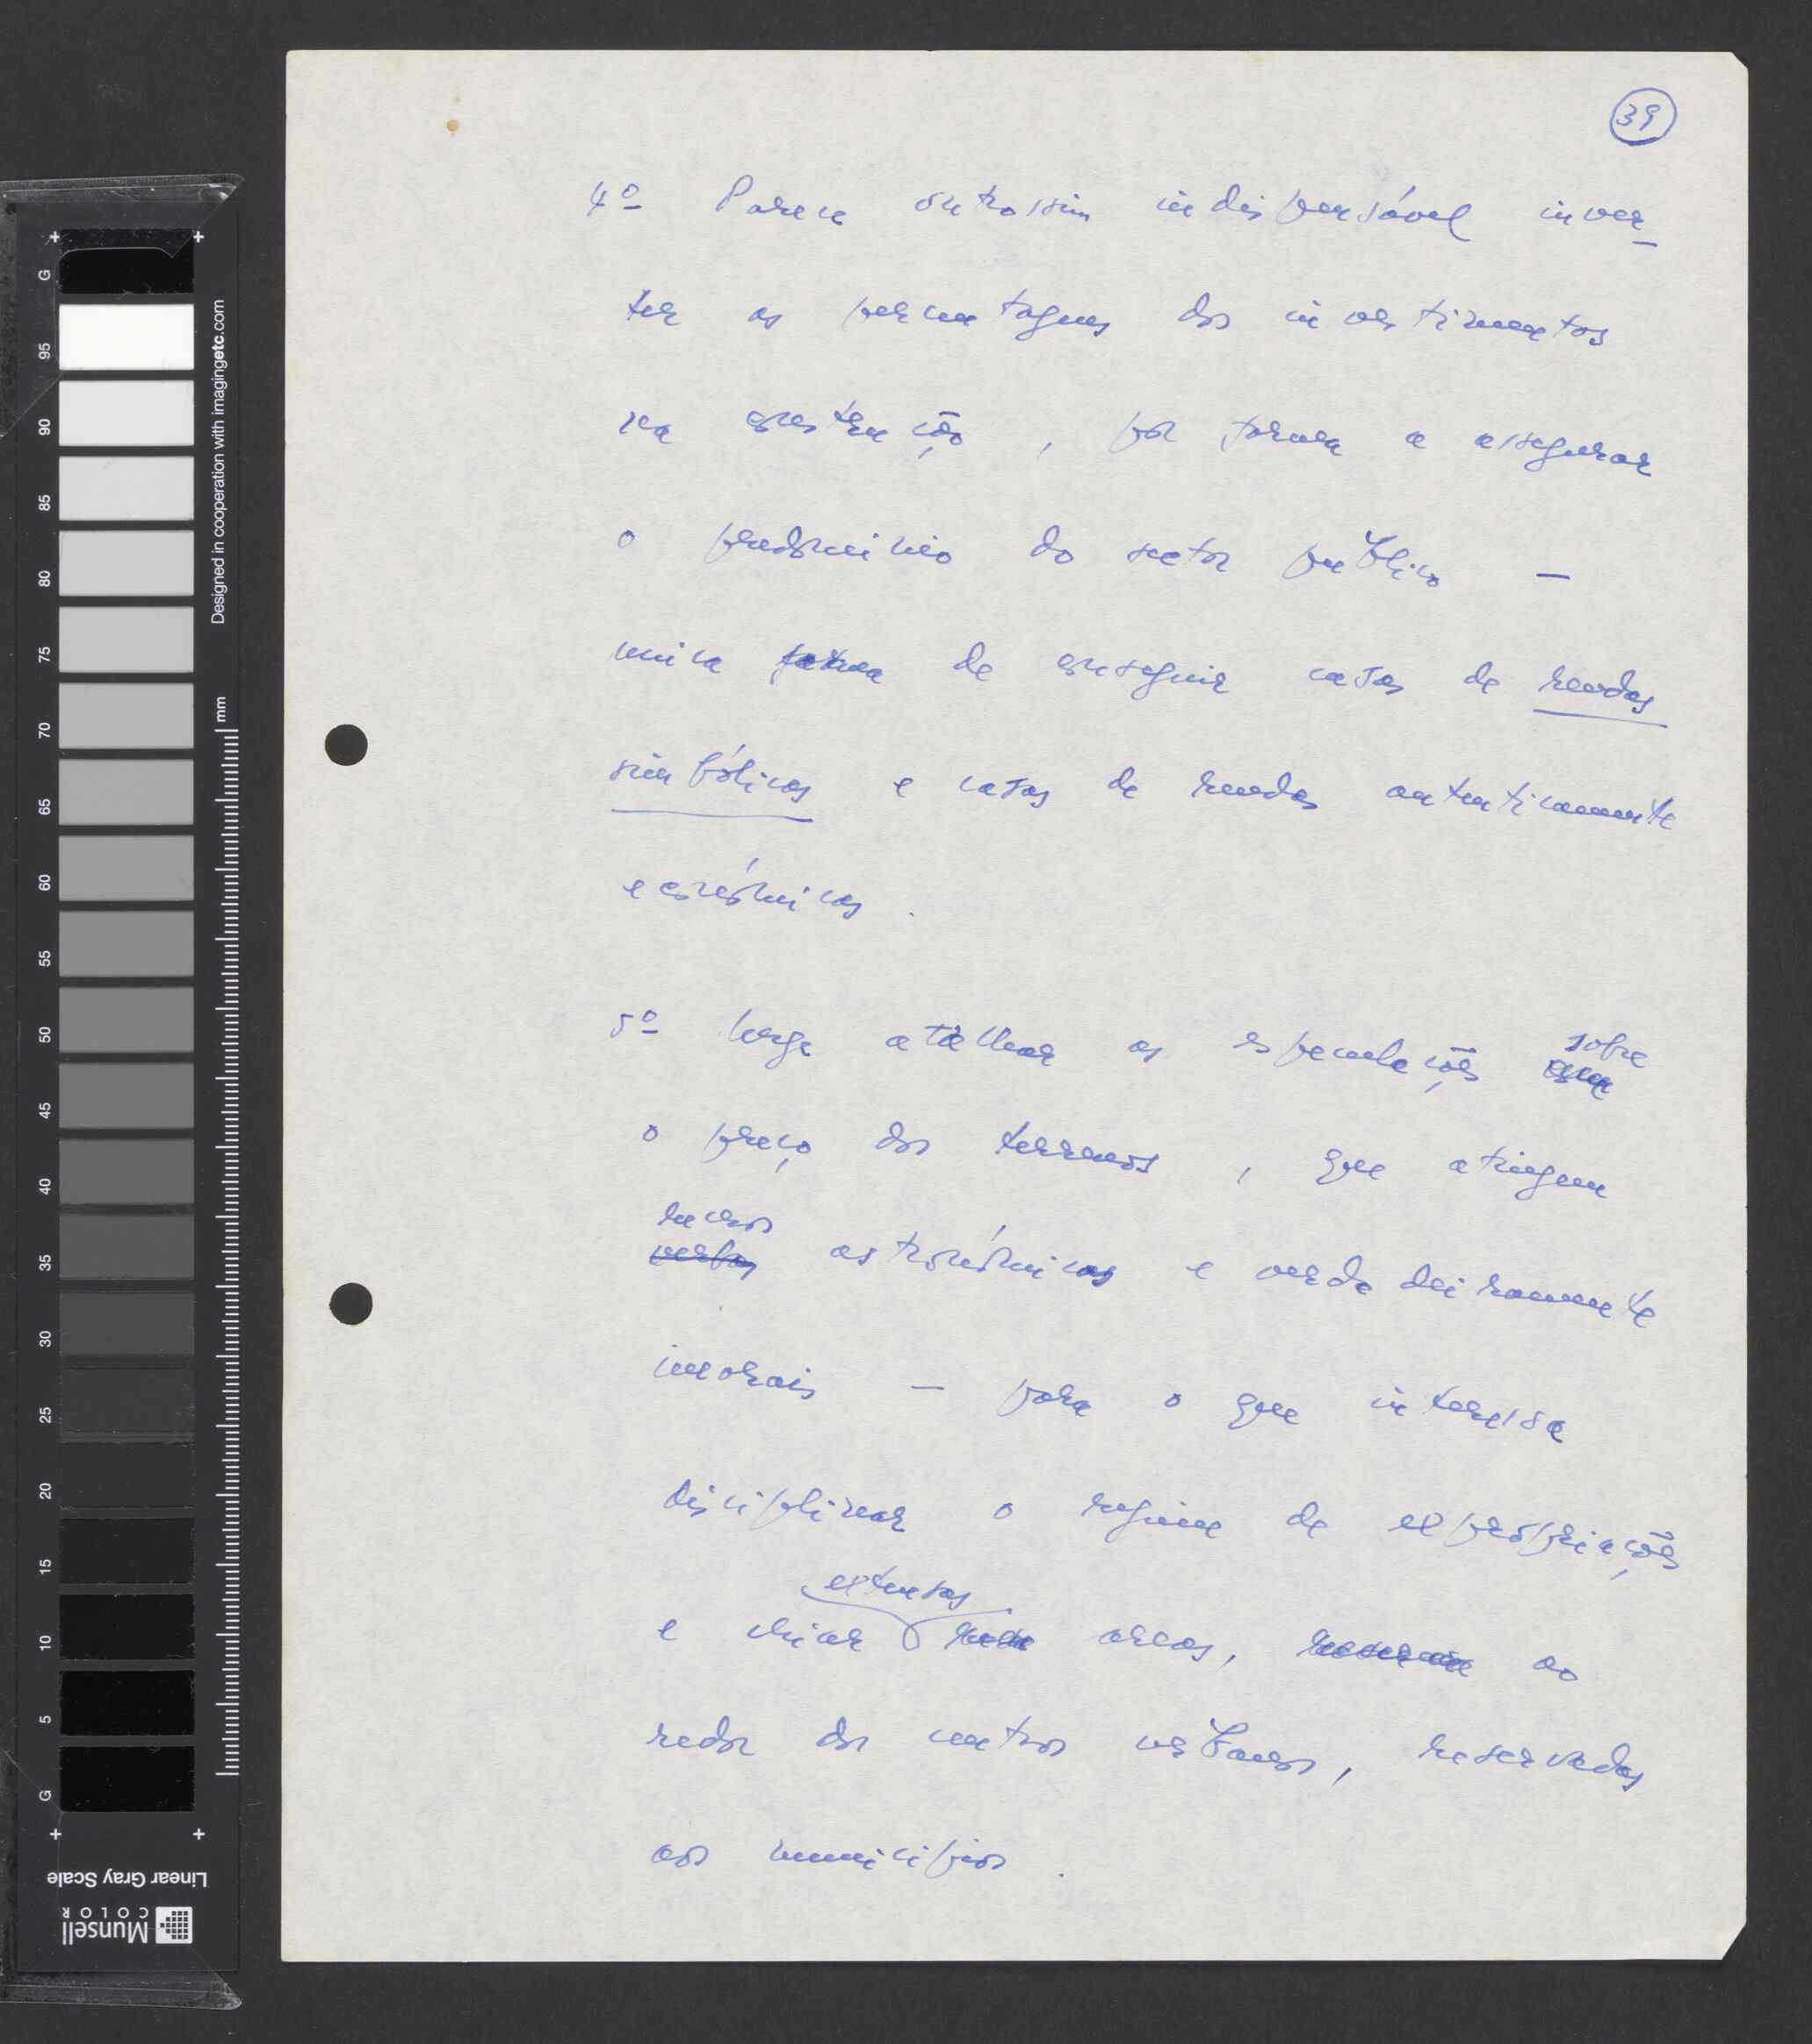 39
4º Parece outrossim indispensável inver-
ter as percentagens dos investimentos
na construção, por forma a assegurar
o predomínio do sector público —
única forma de conseguir casas de rendas
simbólicas e casas de rendas autenticamente
económicas.
5º Urge atalhar as especulações sobre
o preço dos terrenos, que atingem
verbas astronómicas e verdadeiramente
imorais — para o que interessa
disciplinar o regime de expropriações
extensas
e criar areas, ao
redor dos centros urbanos, reservadas
aos municípios.
+ +
G 95 90 85 80 75 70 65 60 55 50 45 40 35 30 25 20 15 10 5 G
Designed in cooperation with imagingetc.com
mm
+ +
Linear Gray Scale
Munsell
COLOR